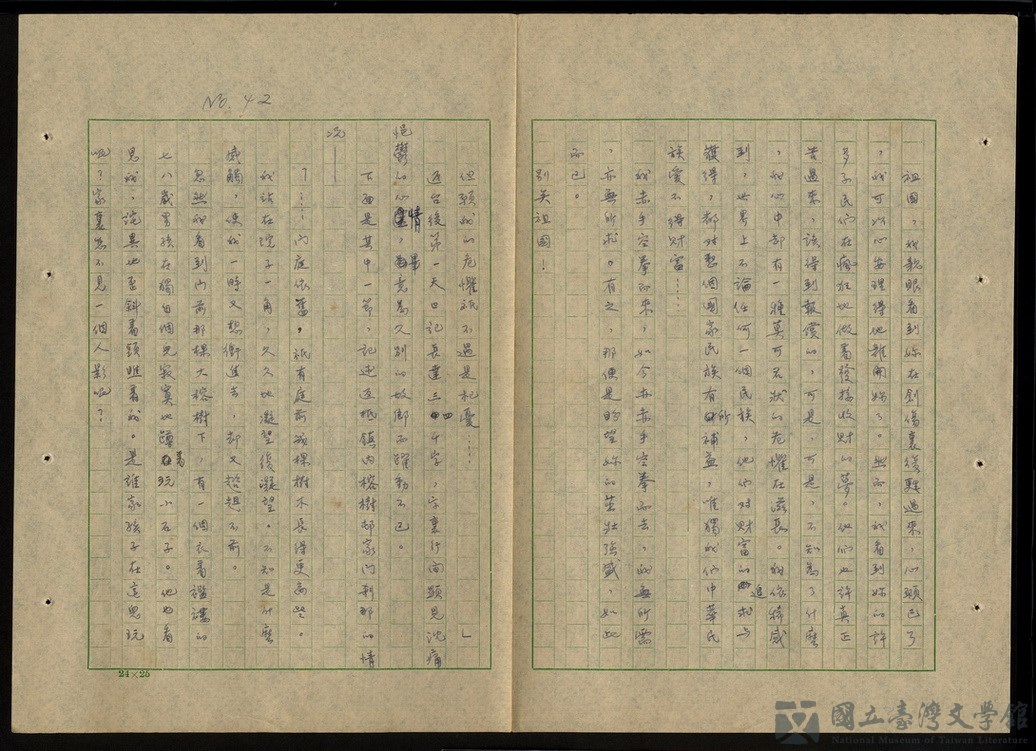 No. 42
祖國，我親眼看到妳在創傷裏復甦過來，心頭已了
，我可以心安理得地離開妳了。然而，我看到妳的許
多子民們在瘋狂地做著發接收財的夢。他們也許真正
苦過來，該得到報償的，可是，可是，不知為了什麼
，我心中卻有一種莫可名狀的危懼在滋長。我依稀感
到，世界上不論任何一個民族，他們對財富的追求与
獲得，都對整個國家民族有所補益，唯獨我們中華民
族愛不得財富……
我赤手空拳而來，如今亦赤手空拳而去，我無所需
，亦無所求。有之，那便是盼望妳的茁壯強盛，如此
而已。
別矣祖國！
但願我的危懼祇不過是杞憂……」
返台後第一天日記長達三四千字，字裏行間顯見沈痛
悒鬱的心情，竟是為久別的故鄉而躍動不已。
下面是其中一節，記述返抵鎮內榕樹邸家門剎那的情
况——
「……門庭依舊，祇有庭前的棵樹木長得更高些。
我站在院子一角，久久地凝望復凝望。不知是什麼
感觸，使我一時又想衝進去，却又趑趄不前。
忽然我看到門前那棵大榕樹下，有一個衣著襤褸的
七八歲男孩在獨自個兒寂寞地蹲著玩小石子。他也看
見我，詫異地歪斜著頭瞧著我。是誰家孩子在這兒玩
呢？家裏怎不見一個人影呢？
24×25
國立臺灣文學館
National Museum of Taiwan Literature